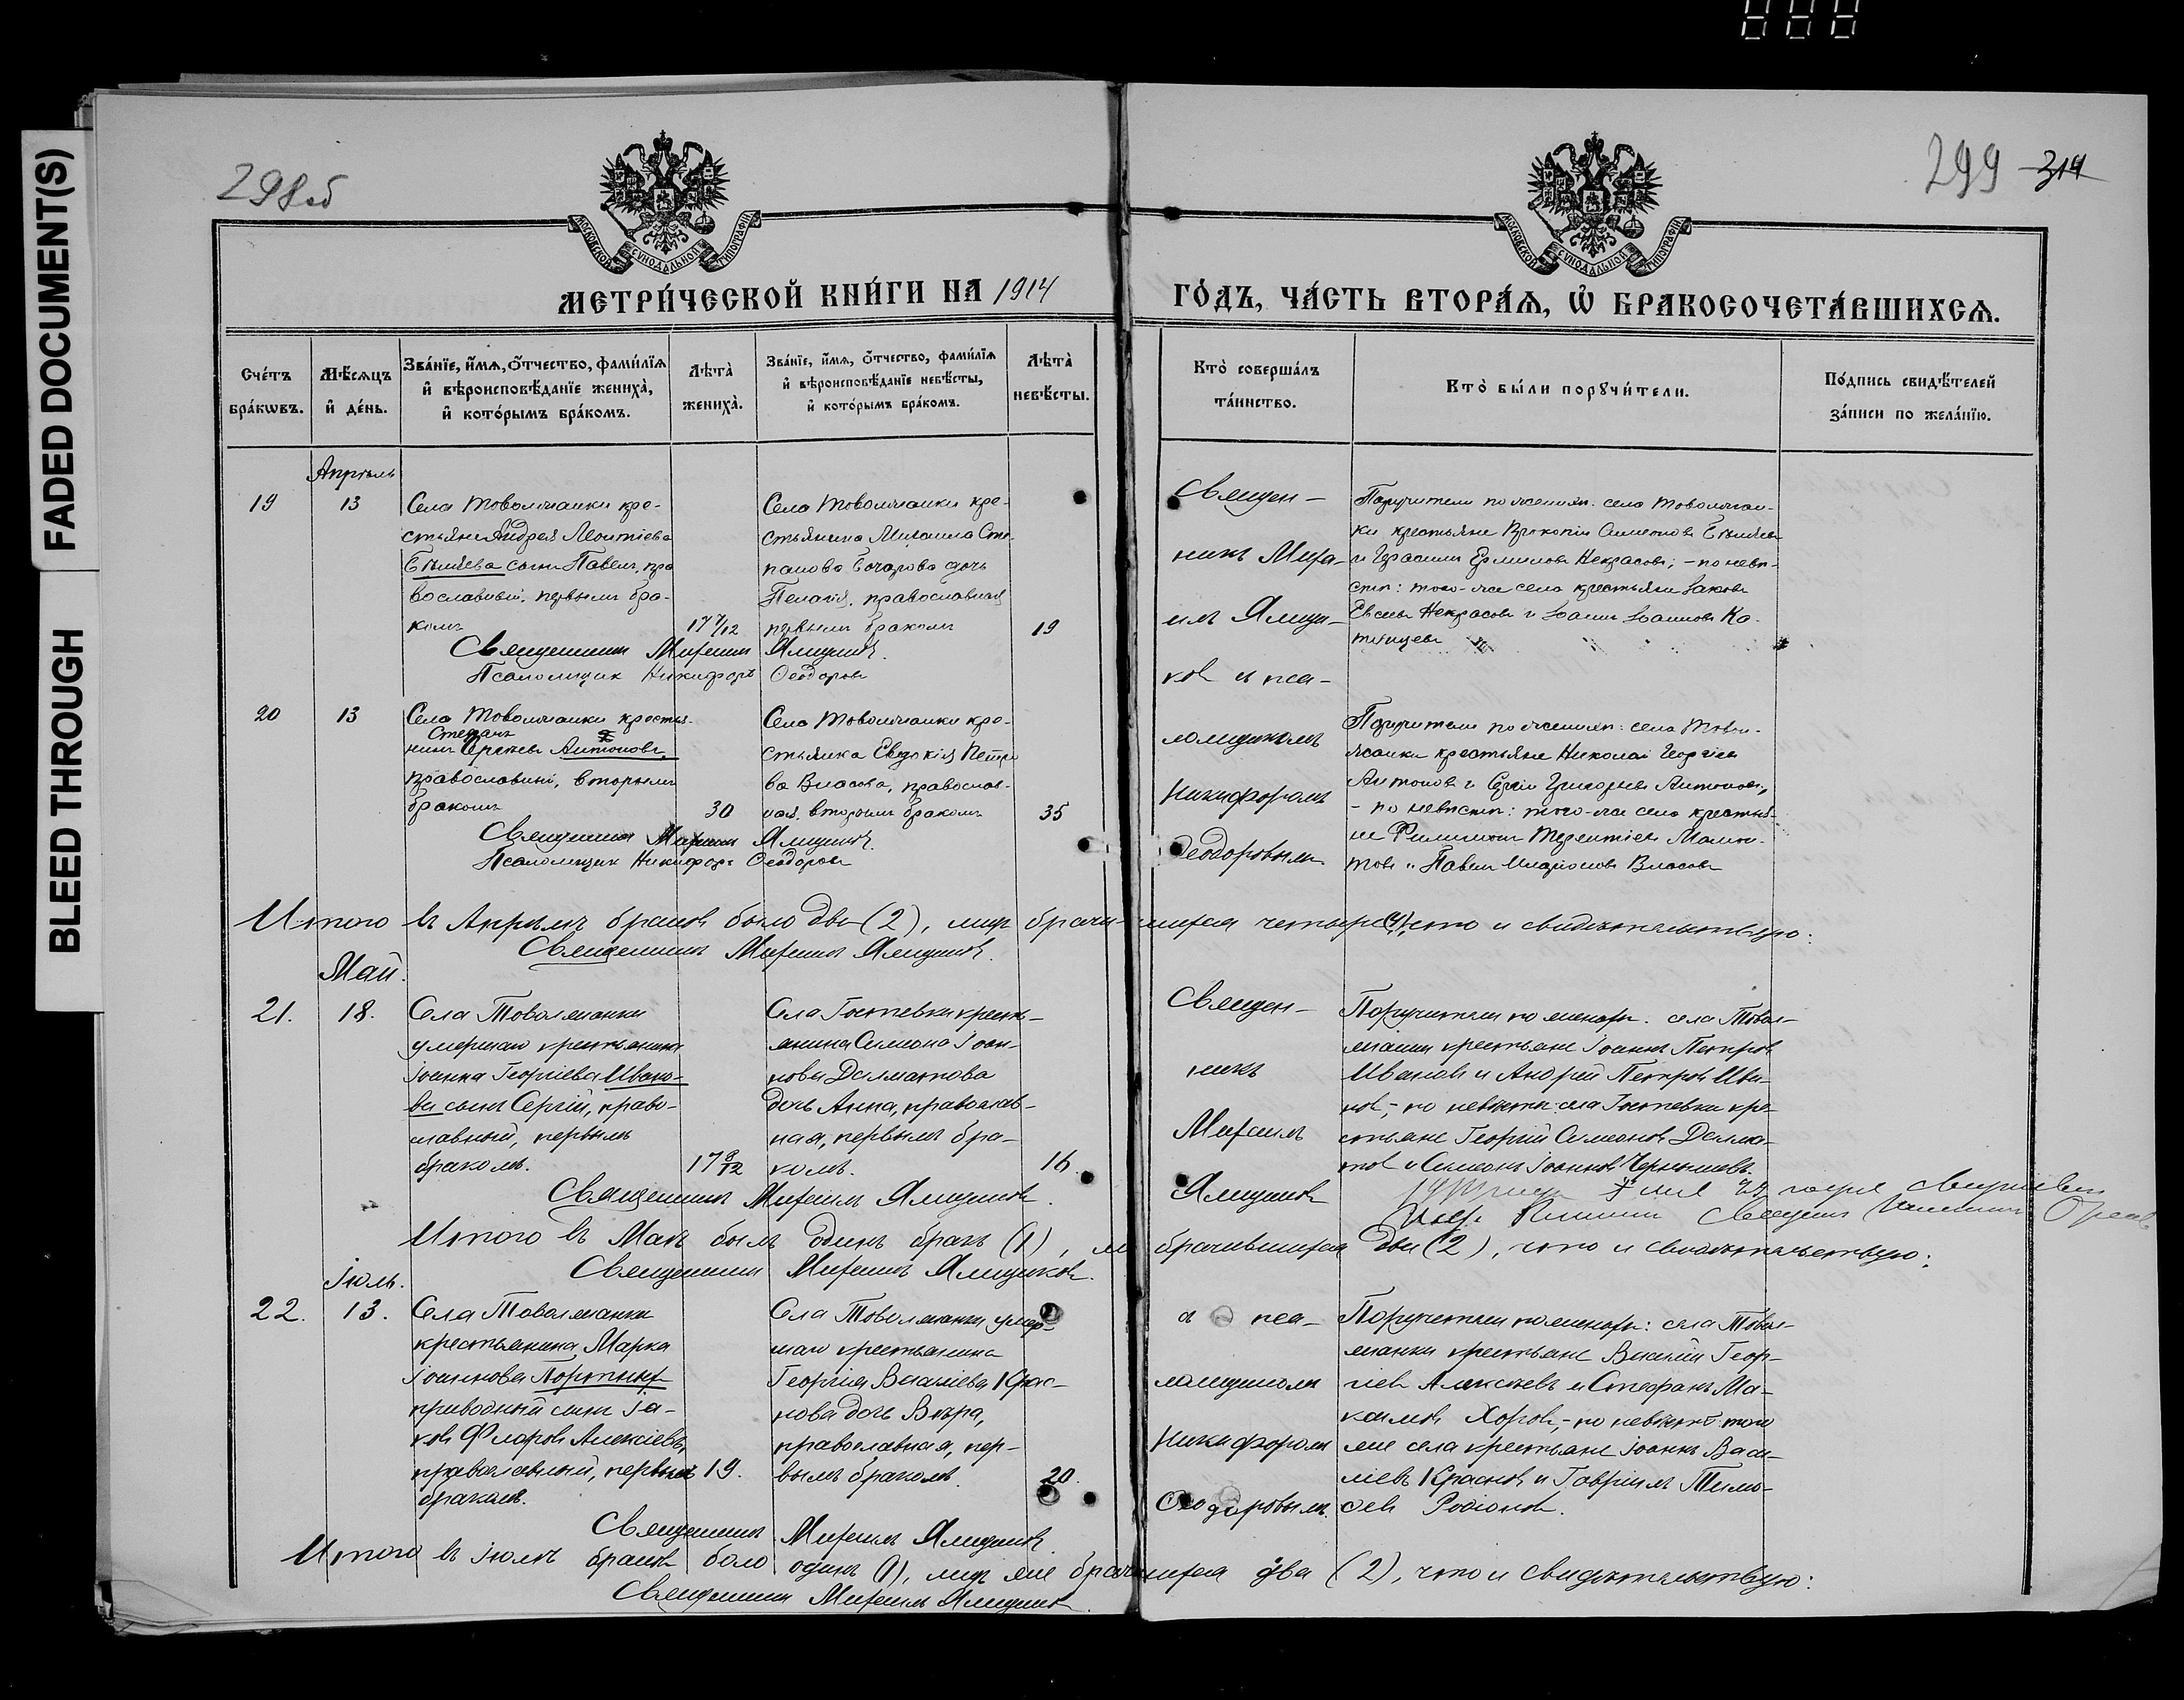 FADED DOCUMENT(S)
BLEED THROUGH
298об
299 314
МОСКОВСКОЙ СУНОДАЛЬНОЙ ТИПОГРАФІИ
МОСКОВСКОЙ СУНОДАЛЬНОЙ ТИПОГРАФІИ
МЕТРИ́ЧЕСКОЙ КНИ́ГИ НА 1914
ГО́ДЪ, ЧА́СТЬ ВТОРА́Ѧ, Ѽ БРАКОСОЧЕТА́ВШИХСѦ.
Сче́тъ бра́кѡвъ.
Мѣ́сѧцъ и҆ де́нь.
Зва́нїе, и҆́мѧ, ѻ҆́тчество, фами́лїѧ
и҆ вѣроисповѣ́данїе жениха̀,
и҆ кото́рымъ бра́комъ.
Лѣта̀ жениха̀.
Зва́нїе, и҆́мѧ, ѻ҆́тчество, фами́лїѧ
и҆ вѣроисповѣ́данїе невѣ́сты,
и҆ кото́рымъ бра́комъ.
Лѣта̀ невѣ́сты.
Кто̀ соверша́лъ
та́инство.
Кто̀ бы́ли порꙋчи́тели.
По́дпись свидѣ́телей
за́писи по жела́нїю.
Апрѣль
19
13
Села Товолжанки кре-
стьянина Андрея Леонтіева
сынъ Павелъ, пра
вославный, первымъ бра-
комъ
17 7/12
Села Товолжанки кре-
стьянина Михаила Сте
панова Бочарова дочь
Пелагія, православная
первымъ бракомъ
19
Священникъ Михаилъ Ямщиковъ.
Псаломщикъ Никифоръ Ѳеодоровъ
Священ-
никъ Миха-
илъ Ямщи-
ковъ и пса-
ломщикомъ
Никифоромъ
Ѳеодоровымъ
Поручители по женихѣ: села Товолжан-
ки крестьяне Прокопій Симеоновъ
и Герасимъ Ермиловъ Некрасовъ; - по невѣ-
стѣ: того-же села крестьяне Іаковъ
Евсевъ Некрасовъ и Іоаннъ Іоанновъ Ка-
20
13
Села Товолжанки крестья-
Стефанъ
нинъ Сергѣевъ Антоновъ,
православный, вторымъ
бракомъ
30
Села Товолжанки кре-
стьянка Евдокія Петро
ва Власова, православ-
ная, вторымъ бракомъ
35
Священникъ Михаилъ Ямщиковъ.
Псаломщикъ Никифоръ Ѳеодоровъ
Поручители по женихѣ: села Товол-
жанки крестьяне Николай Георгіевъ
Антоновъ и Сергій Григорьевъ Антоновъ,
- по невѣстѣ: того-же села крестья-
не Филимонъ Терентіевъ Мамон-
товъ и Павелъ Иларіоновъ Власовъ
Итого въ Апрѣлѣ браковъ было два (2), лицъ брачившихся четыре (4), что и свидѣтельствую:
Священникъ Михаилъ Ямщиковъ.
Май.
21.
18.
Села Товолжанки
умершаго крестьянина
Іоанна Георгіева Ивано-
ва сынъ Сергій, право-
славный, первымъ
бракомъ.
17 8/12
Села Гостевки кресть-
янина Симеона Іоан-
нова Далматова
дочь Анна, православ-
ная, первымъ бра-
комъ.
16.
Священникъ Михаилъ Ямщиковъ.
Священ-
никъ
Михаилъ
Ямщиковъ
Поручители по женихѣ: села Товол-
жанки крестьяне Іоаннъ Петровъ
Ивановъ и Андрей Петровъ Ива-
новъ, - по невѣстѣ: села Гостевки кре-
стьяне Георгій Симеоновъ Далма-
товъ и Симеонъ Іоанновъ Чернышевъ.
Итого въ Маѣ былъ одинъ бракъ (1), брачившихся два (2), что и свидѣтельствую:
Священникъ Михаилъ Ямщиковъ.
Іюль.
22.
13.
Села Товолжанки
крестьянина Марка
Іоаннова
приводный сынъ Іа-
ковъ Флоровъ Алексіевъ,
православный, первымъ
бракомъ.
19.
Села Товолжанки умер-
шаго крестьянина
Георгія Василіева Крас-
нова дочь Вѣра,
православная, пер-
вымъ бракомъ.
20.
и пса-
ломщикомъ
Никифоромъ
Ѳеодоровымъ.
Поручители по женихѣ: села Товол-
жанки крестьяне Василій Геор-
гіевъ Алексѣевъ и Стефанъ Ма-
ксимовъ Хоровъ, - по невѣстѣ: того
же села крестьяне Іоаннъ Васи-
ліевъ Красновъ и Гавріилъ Тимо-
ѳеевъ Родіоновъ.
Священникъ Михаилъ Ямщиковъ
Итого въ Іюлѣ браковъ было одинъ (1), лицъ же брачившихся два (2), что и свидѣтельствую:
Священникъ Михаилъ Ямщиковъ.